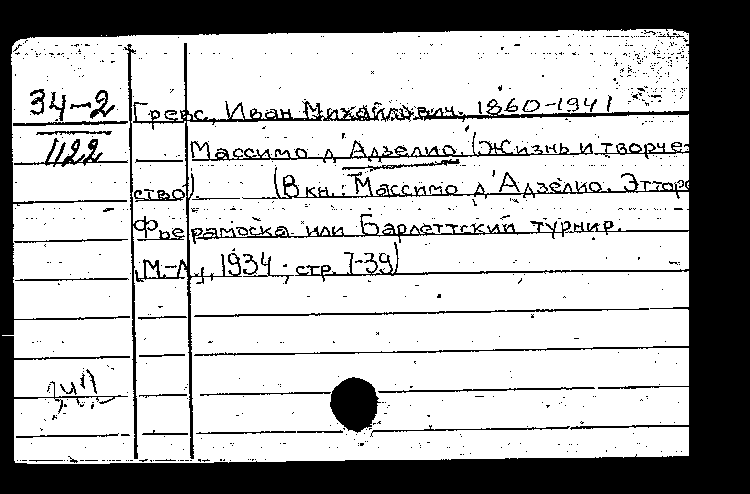 34-2
1122
Гревс, Иван Михайлович, 1860-1941
Массимо д'Адзелио. (Жизнь и творче-
ство). (В кн.: Массимо д'Адзелио. Этторе
Фьерамоска или Барлеттский турнир.
М.-Л., 1934; стр. 7-39)